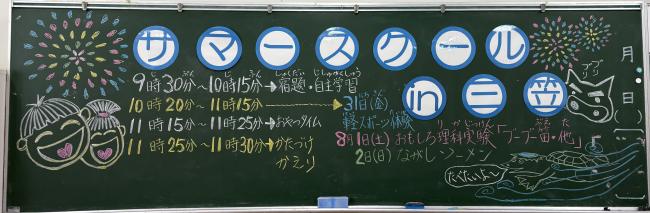 サマースクール
in三笠
9時30分～10時15分→宿題・自主学習
10時20分～11時15分→31日(金)
軽スポーツ体験
8月1日(土)おもしろ理科実験「ブーブー笛・他」
2日(日)ながしソーメン
11時15分～11時25分→おやつタイム
11時25分～11時30分→かたづけ
かえり
たべたいよ〜
ブリブリ
月
日